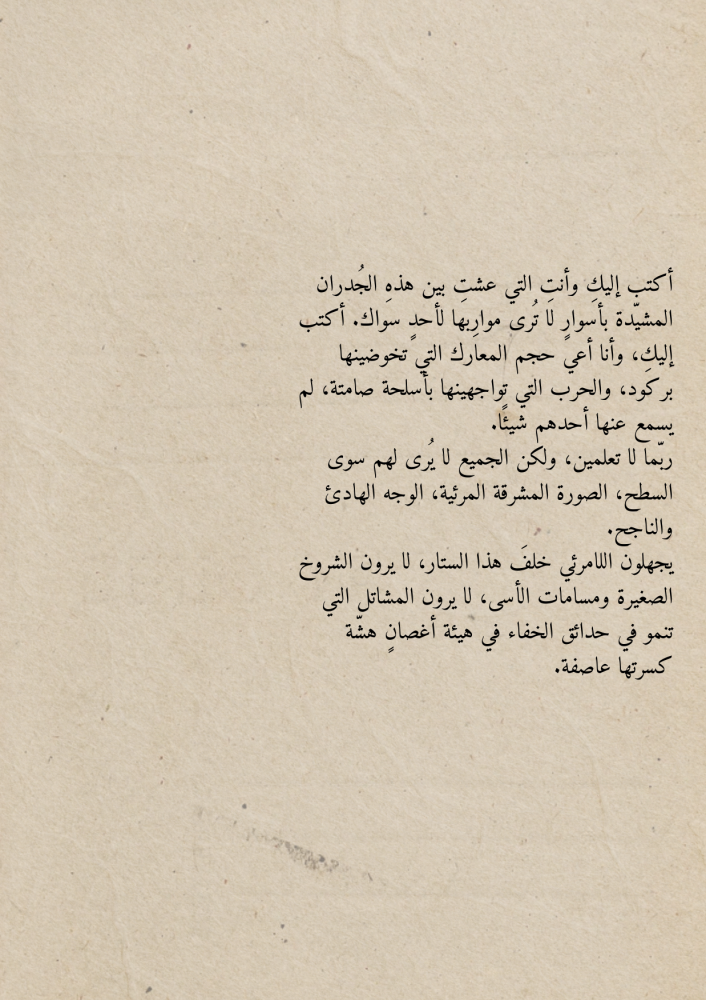 أكتب إليكِ وأنتِ التي عشتِ بين هذهِ الجُدران
المشيّدة بأسوارٍ لا تُرى مواربها لأحدٍ سَواك. أكتب
إليكِ، وأنا أعي حجم المعارك التي تخوضينها
بركود، والحرب التي تواجهينها بأسلحة صامتة، لم
يسمع عنها أحدهم شيئًا.
ربّما لا تعلمين، ولكن الجميع لا يُرى لهم سوى
السطح، الصورة المشرقة المرئية، الوجه الهادئ
والناجح.
يجهلون اللامرئي خلفَ هذا الستار، لا يرون الشروخ
الصغيرة ومسامات الأسى، لا يرون المشاتل التي
تنمو في حدائق الخفاء في هيئة أغصانٍ هشّة
كسرتها عاصفة.